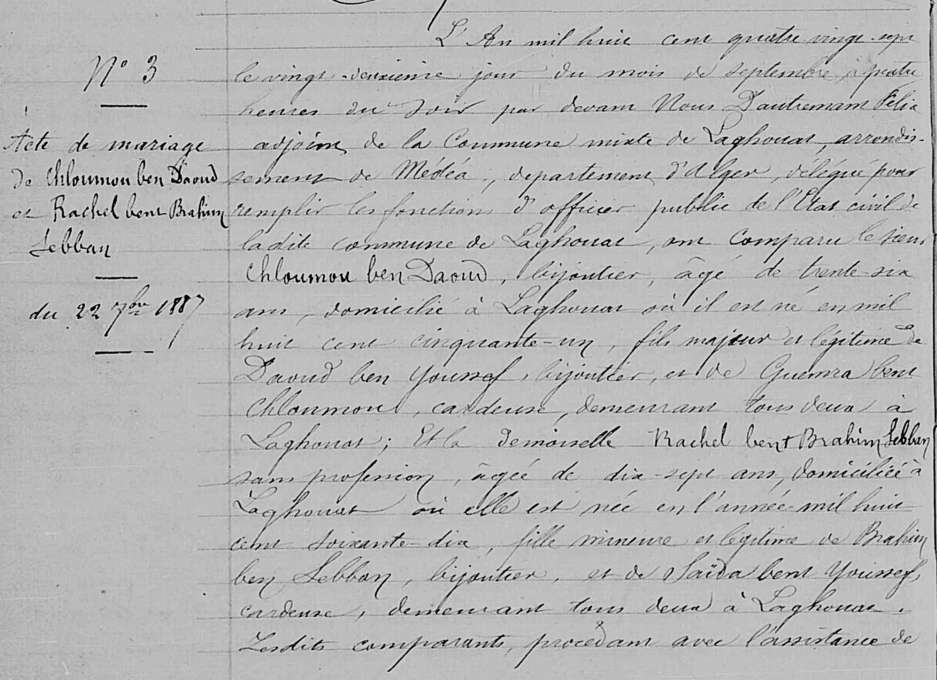 N° 3
Acte de mariage
de Chloumou ben Daoud
et Rachel bent Brahim
Sebban
du 22 7bre 1887
L'An mil huit cent quatre vingt-sept
le vingt-deuxième jour du mois de septembre, à quatre
heures du soir par devant Nous Dautremant Félix
adjoint de la Commune mixte de Laghouat, arrondis-
sement de Médéa, département d'Alger, délégué pour
remplir les fonctions d'officier public de l'Etat civil de
ladite commune de Laghouat, ont comparu le sieur
Chloumou ben Daoud, bijoutier, âgé de trente-six
ans, domicilié à Laghouat où il est né en mil
huit cent cinquante-un, fils majeur et légitime de
Daoud ben Youssef, bijoutier, et de Guemra bent
Chloumou, cardeuse, demeurant tous deux à
Laghouat; Et la demoiselle Rachel bent Brahim Sebban
sans profession, âgée de dix-sept ans, domiciliée à
Laghouat où elle est née en l'année mil huit
cent soixante-dix, fille mineure et légitime de Brahim
ben Sebban, bijoutier, et de Saïda bent Youssef,
cardeuse, demeurant tous deux à Laghouat.
Lesdits comparants, procédant avec l'assistance de